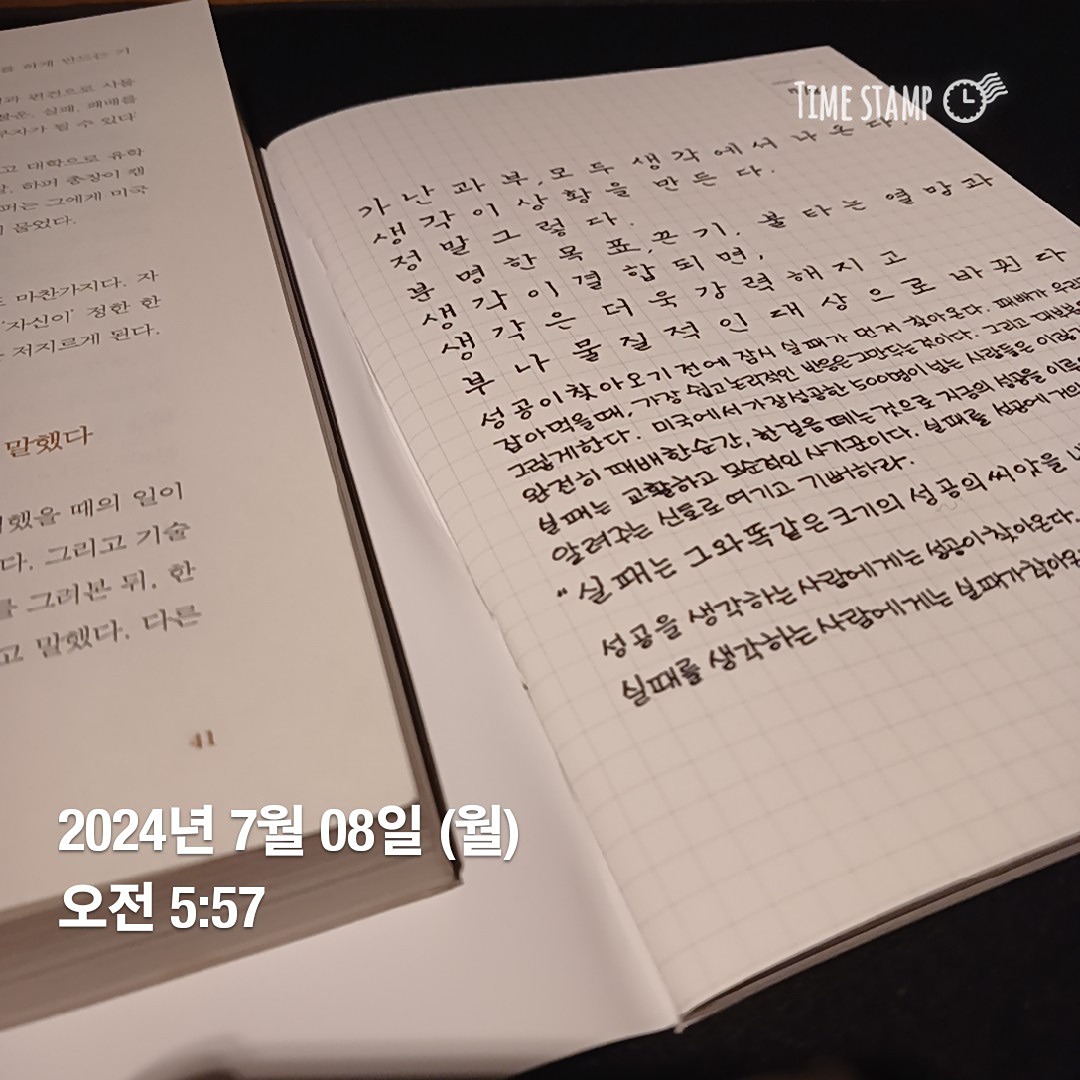 하게 만드는 기
편견으로 사물
실패, 패배를
부자가 될 수 있다
고 대학으로 유학
하퍼 총장이 캠
퍼는 그에게 미국
물었다.
마찬가지다. 자
'자신이' 정한 한
저지르게 된다.
말했다
했을 때의 일이
다. 그리고 기술
를 그려본 뒤, 한
고 말했다. 다른
41
TIME STAMP
가난과 부, 모두 생각에서 나온다.
생각이 상황을 만든다.
정말 그렇다.
분명한 목표, 끈기, 불타는 열망과
생각이 결합되면,
생각은 더욱 강력해지고
부나 물질적인 대상으로 바뀐다
성공이 찾아오기 전에 잠시 실패가 먼저 찾아온다. 패배가 우리를
잡아먹을 때, 가장 쉽고 논리적인 반응은 그만두는 것이다. 그리고 대부분
그렇게 한다. 미국에서 가장 성공한 500명이 넘는 사람들은
완전히 패배한 순간, 한 걸음 떼는 것으로 지금의 성공을
실패는 교활하고 모순적인 사기꾼이다. 실패를 성공에 거의
알려주는 신호로 여기고 기뻐하라.
"실패는 그와 똑같은 크기의 성공의 씨앗을
성공을 생각하는 사람에게는 성공이 찾아온다.
실패를 생각하는 사람에게는 실패가 찾아온
2024년 7월 08일 (월)
오전 5:57